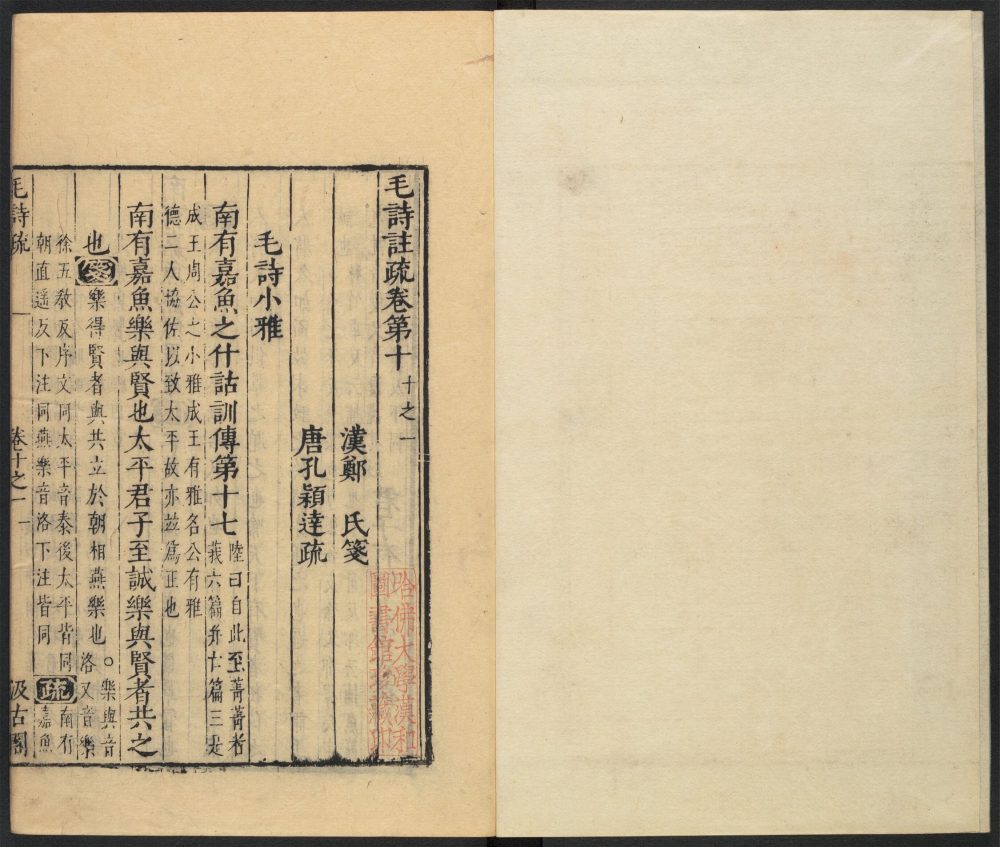 毛詩註疏卷第十 十之一
漢鄭 氏箋
唐孔穎達疏
毛詩小雅
南有嘉魚之什詁訓傳第十七 陸曰自此至菁菁者
莪六篇并亡篇三是
成王周公之小雅成王有雅名公有雅
德二人協佐以致太平故亦並爲正也
南有嘉魚樂與賢也太平君子至誠樂與賢者共之
也箋樂得賢者與共立於朝相燕樂也○樂與音
洛又音樂
徐五教反序文同太平音泰後太平皆同疏南有
朝直遥反下注同燕樂音洛下注皆同嘉魚
毛詩疏 卷十之一 一 汲古閣
哈佛大學漢和
圖書館珍藏印